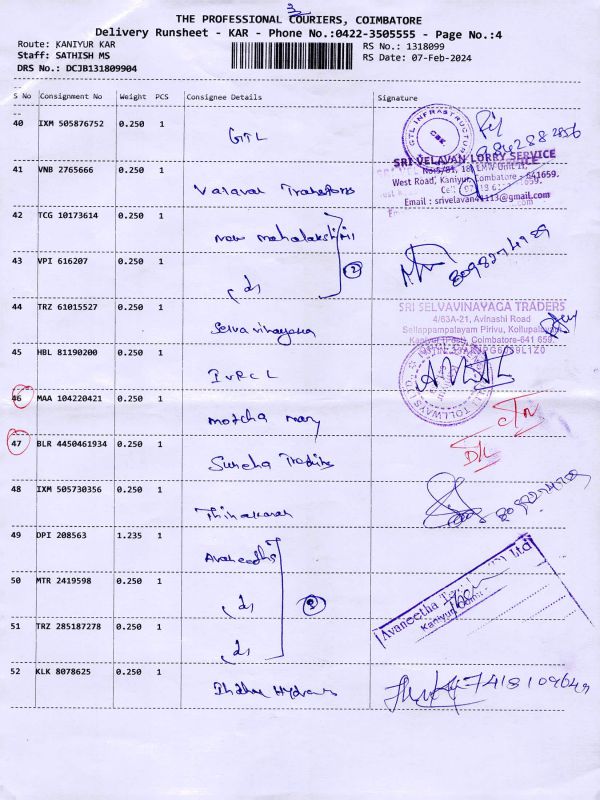 3
THE PROFESSIONAL COURIERS, COIMBATORE
Delivery Runsheet - KAR - Phone No.:0422-3505555 - Page No.:4
Route: KANIYUR KAR
Staff: SATHISH MS
DRS No.: DCJB131809904
RS No.: 1318099
RS Date: 07-Feb-2024
S No Consignment No Weight PCS Consignee Details Signature
40 IXM 505876752 0.250 1
GTL
GTL INFRASTRUCTURE
CBE.
41 VNB 2765666 0.250 1
Valavan Transports
SRI VELAVAN LORRY SERVICE
West Road, Kaniyur, Coimbatore - 641659.
Email : srivelavan41113@gmail.com
42 TCG 10173614 0.250 1
New mahalakshmi
43 VPI 616207 0.250 1
(d) 2
8098274989
44 TRZ 61015527 0.250 1
Selva vinayaga
SRI SELVAVINAYAGA TRADERS
4/63A-21, Avinashi Road
Sellappampalayam Pirivu, Kollupalayam
Kaniyur (Post), Coimbatore-641 659.
45 HBL 81190200 0.250 1
IVRCL
TOLLWAYS LTD
46 MAA 104220421 0.250 1
motcha mary
47 BLR 4450461934 0.250 1
Sureha Trading
D/L
48 IXM 505730356 0.250 1
Thinakaran
49 DPI 208563 1.235 1
Avaneedha
50 MTR 2419598 0.250 1
(d)
51 TRZ 285187278 0.250 1
(d)
Avaneetha Ltd
Kaniyur
52 KLK 8078625 0.250 1
7418109649